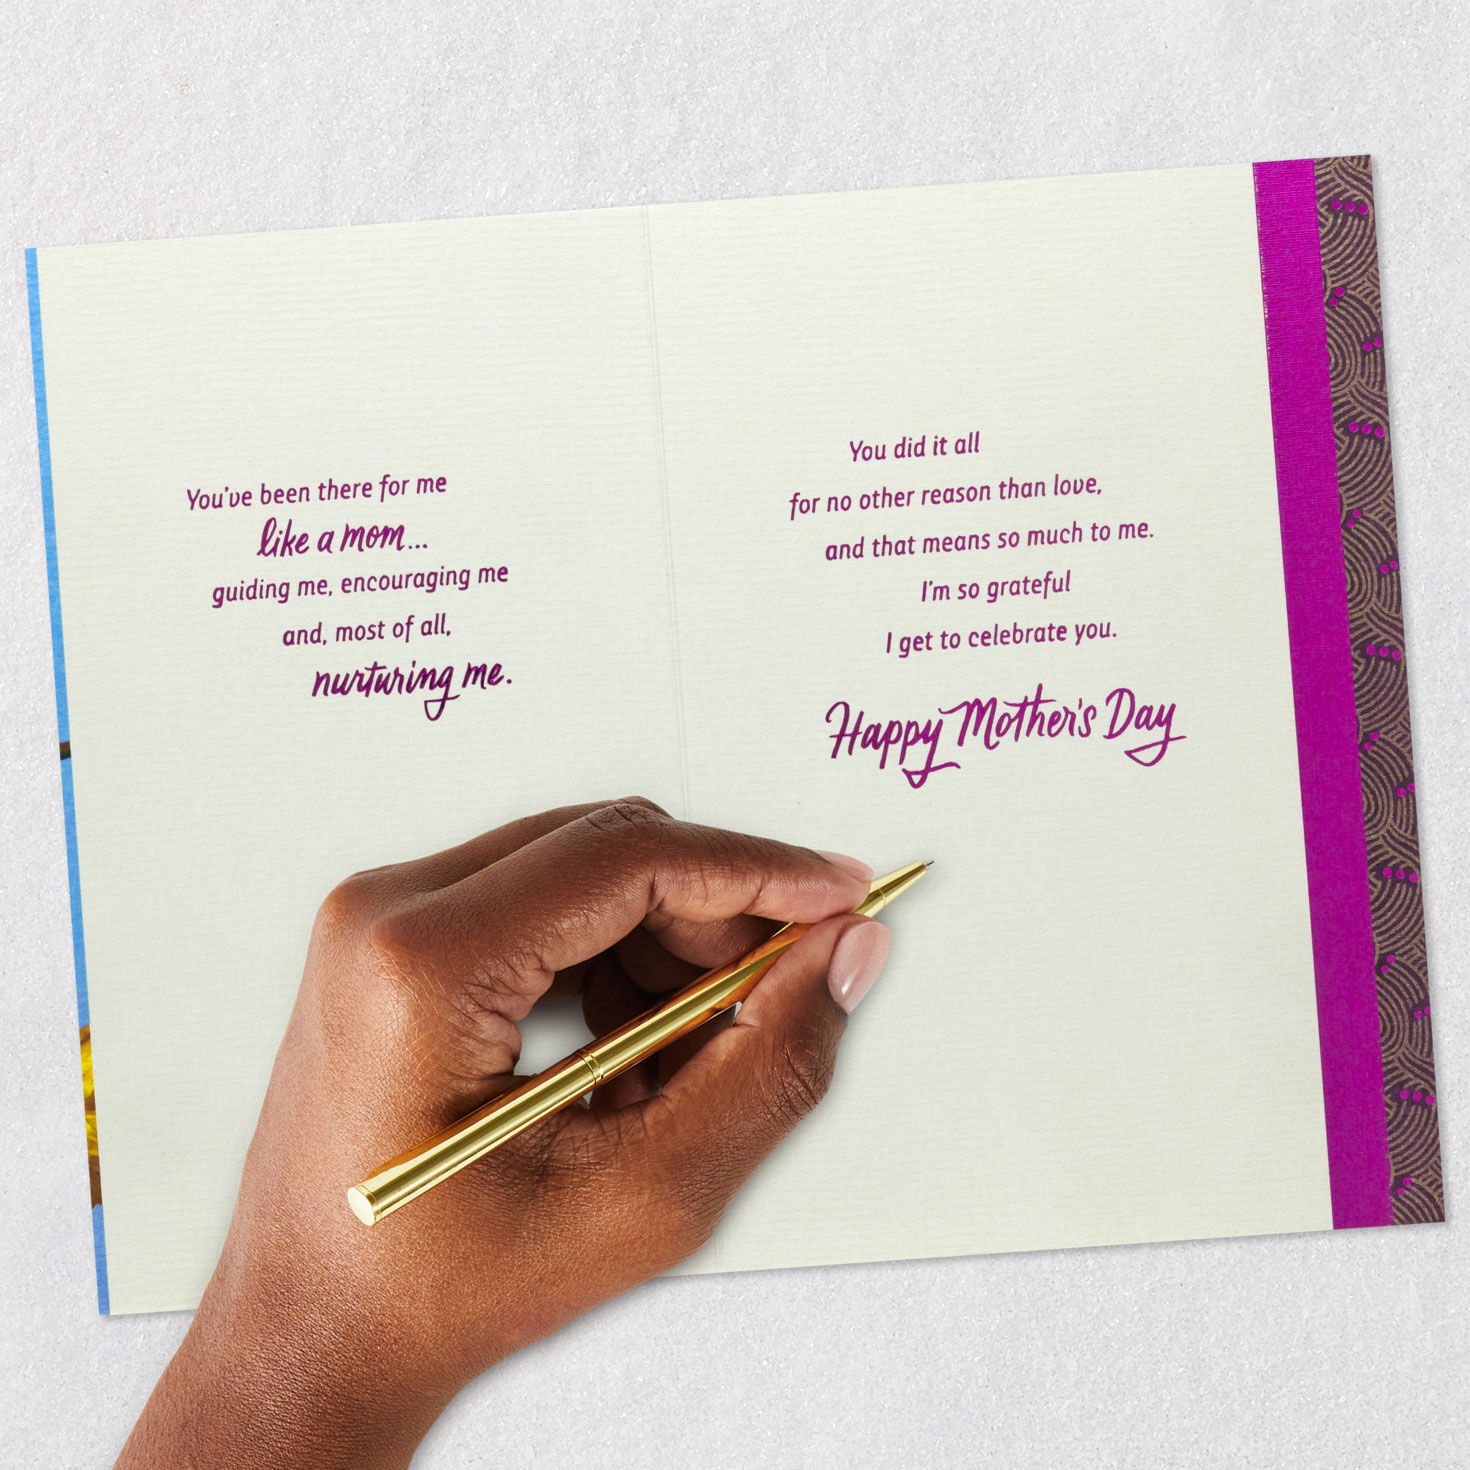 You've been there for me
like a mom...
guiding me, encouraging me
and, most of all,
nurturing me.
You did it all
for no other reason than love,
and that means so much to me.
I'm so grateful
I get to celebrate you.
Happy Mother's Day